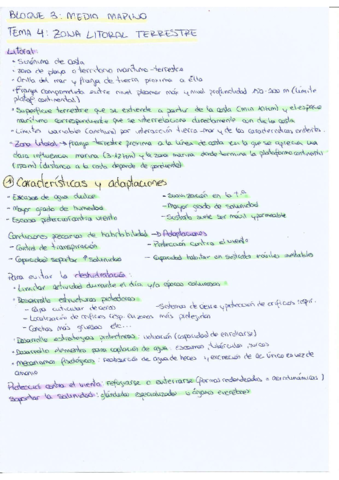 BLOQUE 3: MEDIO MARINO
TEMA 4: ZONA LITORAL TERRESTRE
Litoral:
- Sinónimo de costa
- Zona de playa o territorio marítimo-terrestre
- Orilla del mar y franja de tierra próxima a ella
- Franja comprendida entre nivel pleamar más y nivel profundidad 150-200 m (límite plataf. continental)
- Superficie terrestre que se extiende a partir de la costa y el espacio marítimo correspondiente que se interrelaciona directamente con dicha costa
- Límites variables continuos por interacción tierra-mar y de las características
- Zona litoral → franja terrestre próxima a la línea de costa en la que se aprecia una clara influencia marina y la zona marina
① Características y adaptaciones
- Escasez de agua dulce
- Mayor grado de humedad
- Escasa protección contra viento
- Suavización en la Tª
- Mayor grado de salinidad
- Sustrato suele ser móvil y permeable
Condiciones precarias de habitabilidad → Adaptaciones
- Control de transpiración
- Capacidad soportar ↑ salinidades
- Protección contra el viento
- Capacidad habitar en sustratos móviles inestables
Para evitar la deshidratación:
- Limitar actividad durante el día y/o épocas calurosas
- Desarrollo estructuras protectoras:
- Capa cuticular de ceras
- Localización de orificios resp. en zonas más protegidas
- Conchas más gruesas etc...
- Sistemas de cierre y protección de orificios resp.
- Desarrollo estrategias protectoras: (capacidad de enrollarse)
- Desarrollo elementos para captación de agua: escamas, tubérculos, surcos
- Mecanismos fisiológicos: reabsorción de agua de heces y excreción de ác. úrico en vez de amonio
Protección contra el viento: refugiarse o enterrarse (formas redondeadas o aerodinámicas)
Soportar la salinidad: glándulas especializadas u órganos excretores